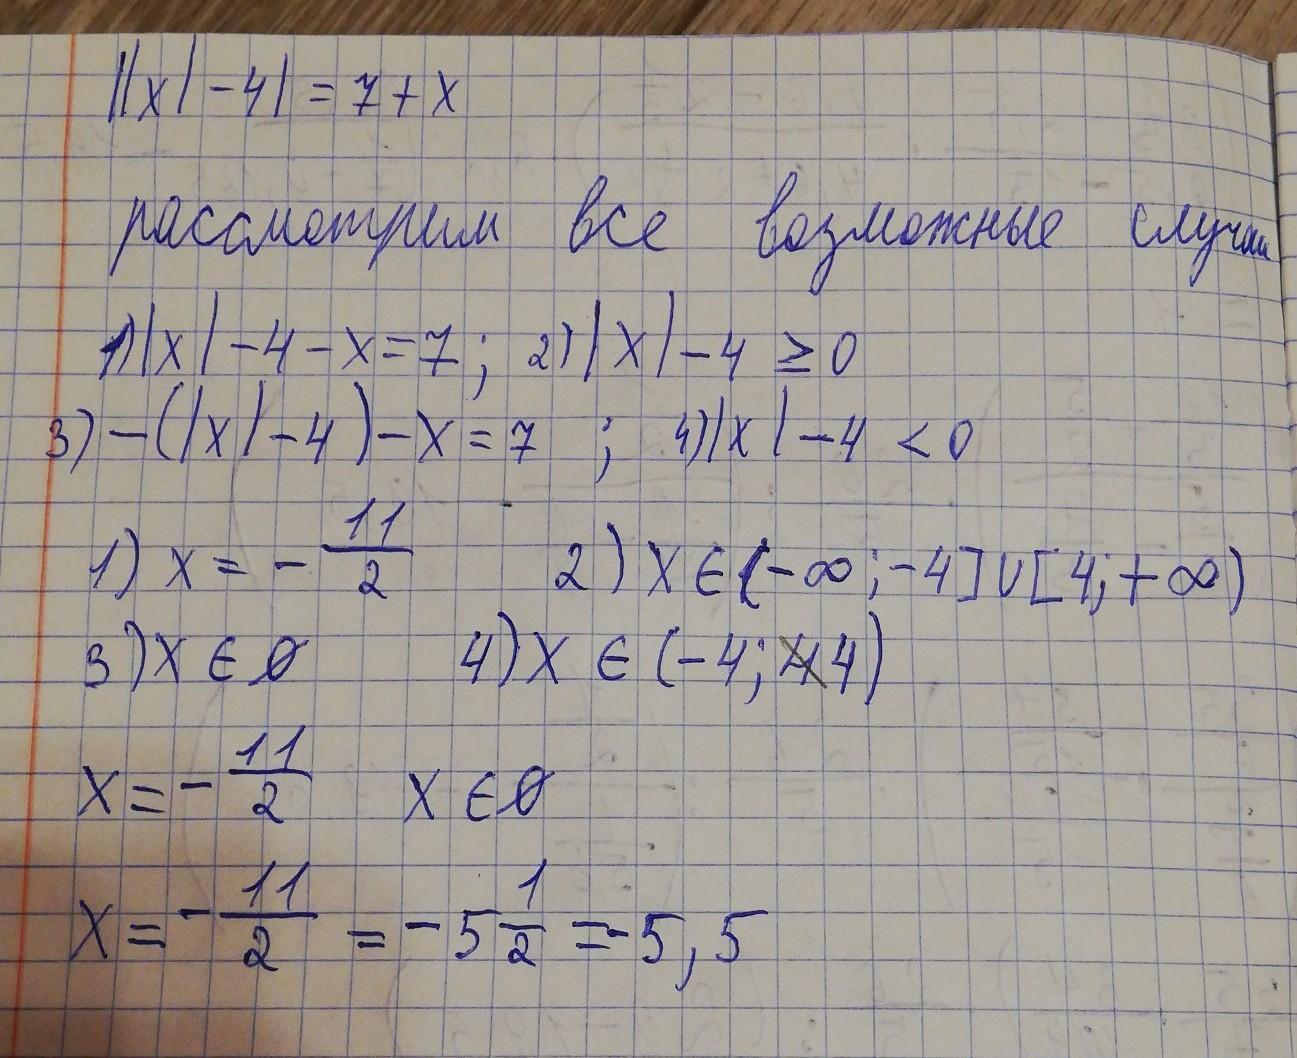 ||x|-4|=7+x
рассмотрим все возможные случаи
1)|x|-4-x=7; 2)|x|-4≥0
3)-(|x|-4)-x=7 ; 4)|x|-4<0
1) x=-11/2 2) x∈(-∞;-4]∪[4;+∞)
3)x∈∅ 4)x∈(-4;4)
x=-11/2 x∈∅
x=-11/2=-5 1/2=-5,5